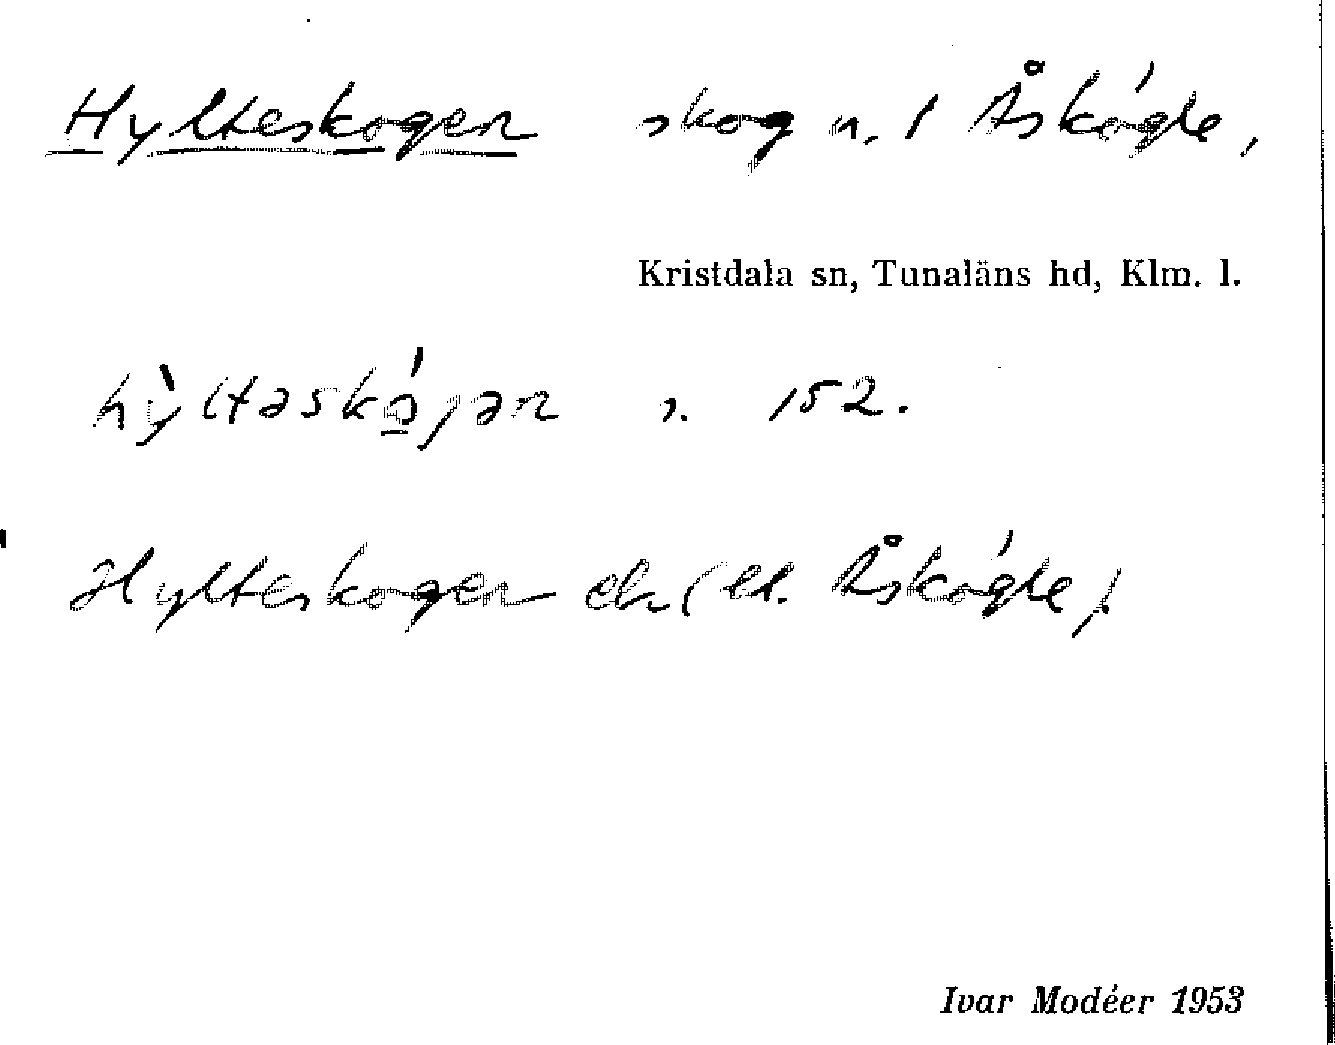 Hylteskogen skog n. 1 Åskógle,
Kristdala sn, Tunaläns hd, Klm. l.
hỳltəskó̱jən s. 152.
Hylteskogen ek (el. Åskógle).
Ivar Modéer 1953